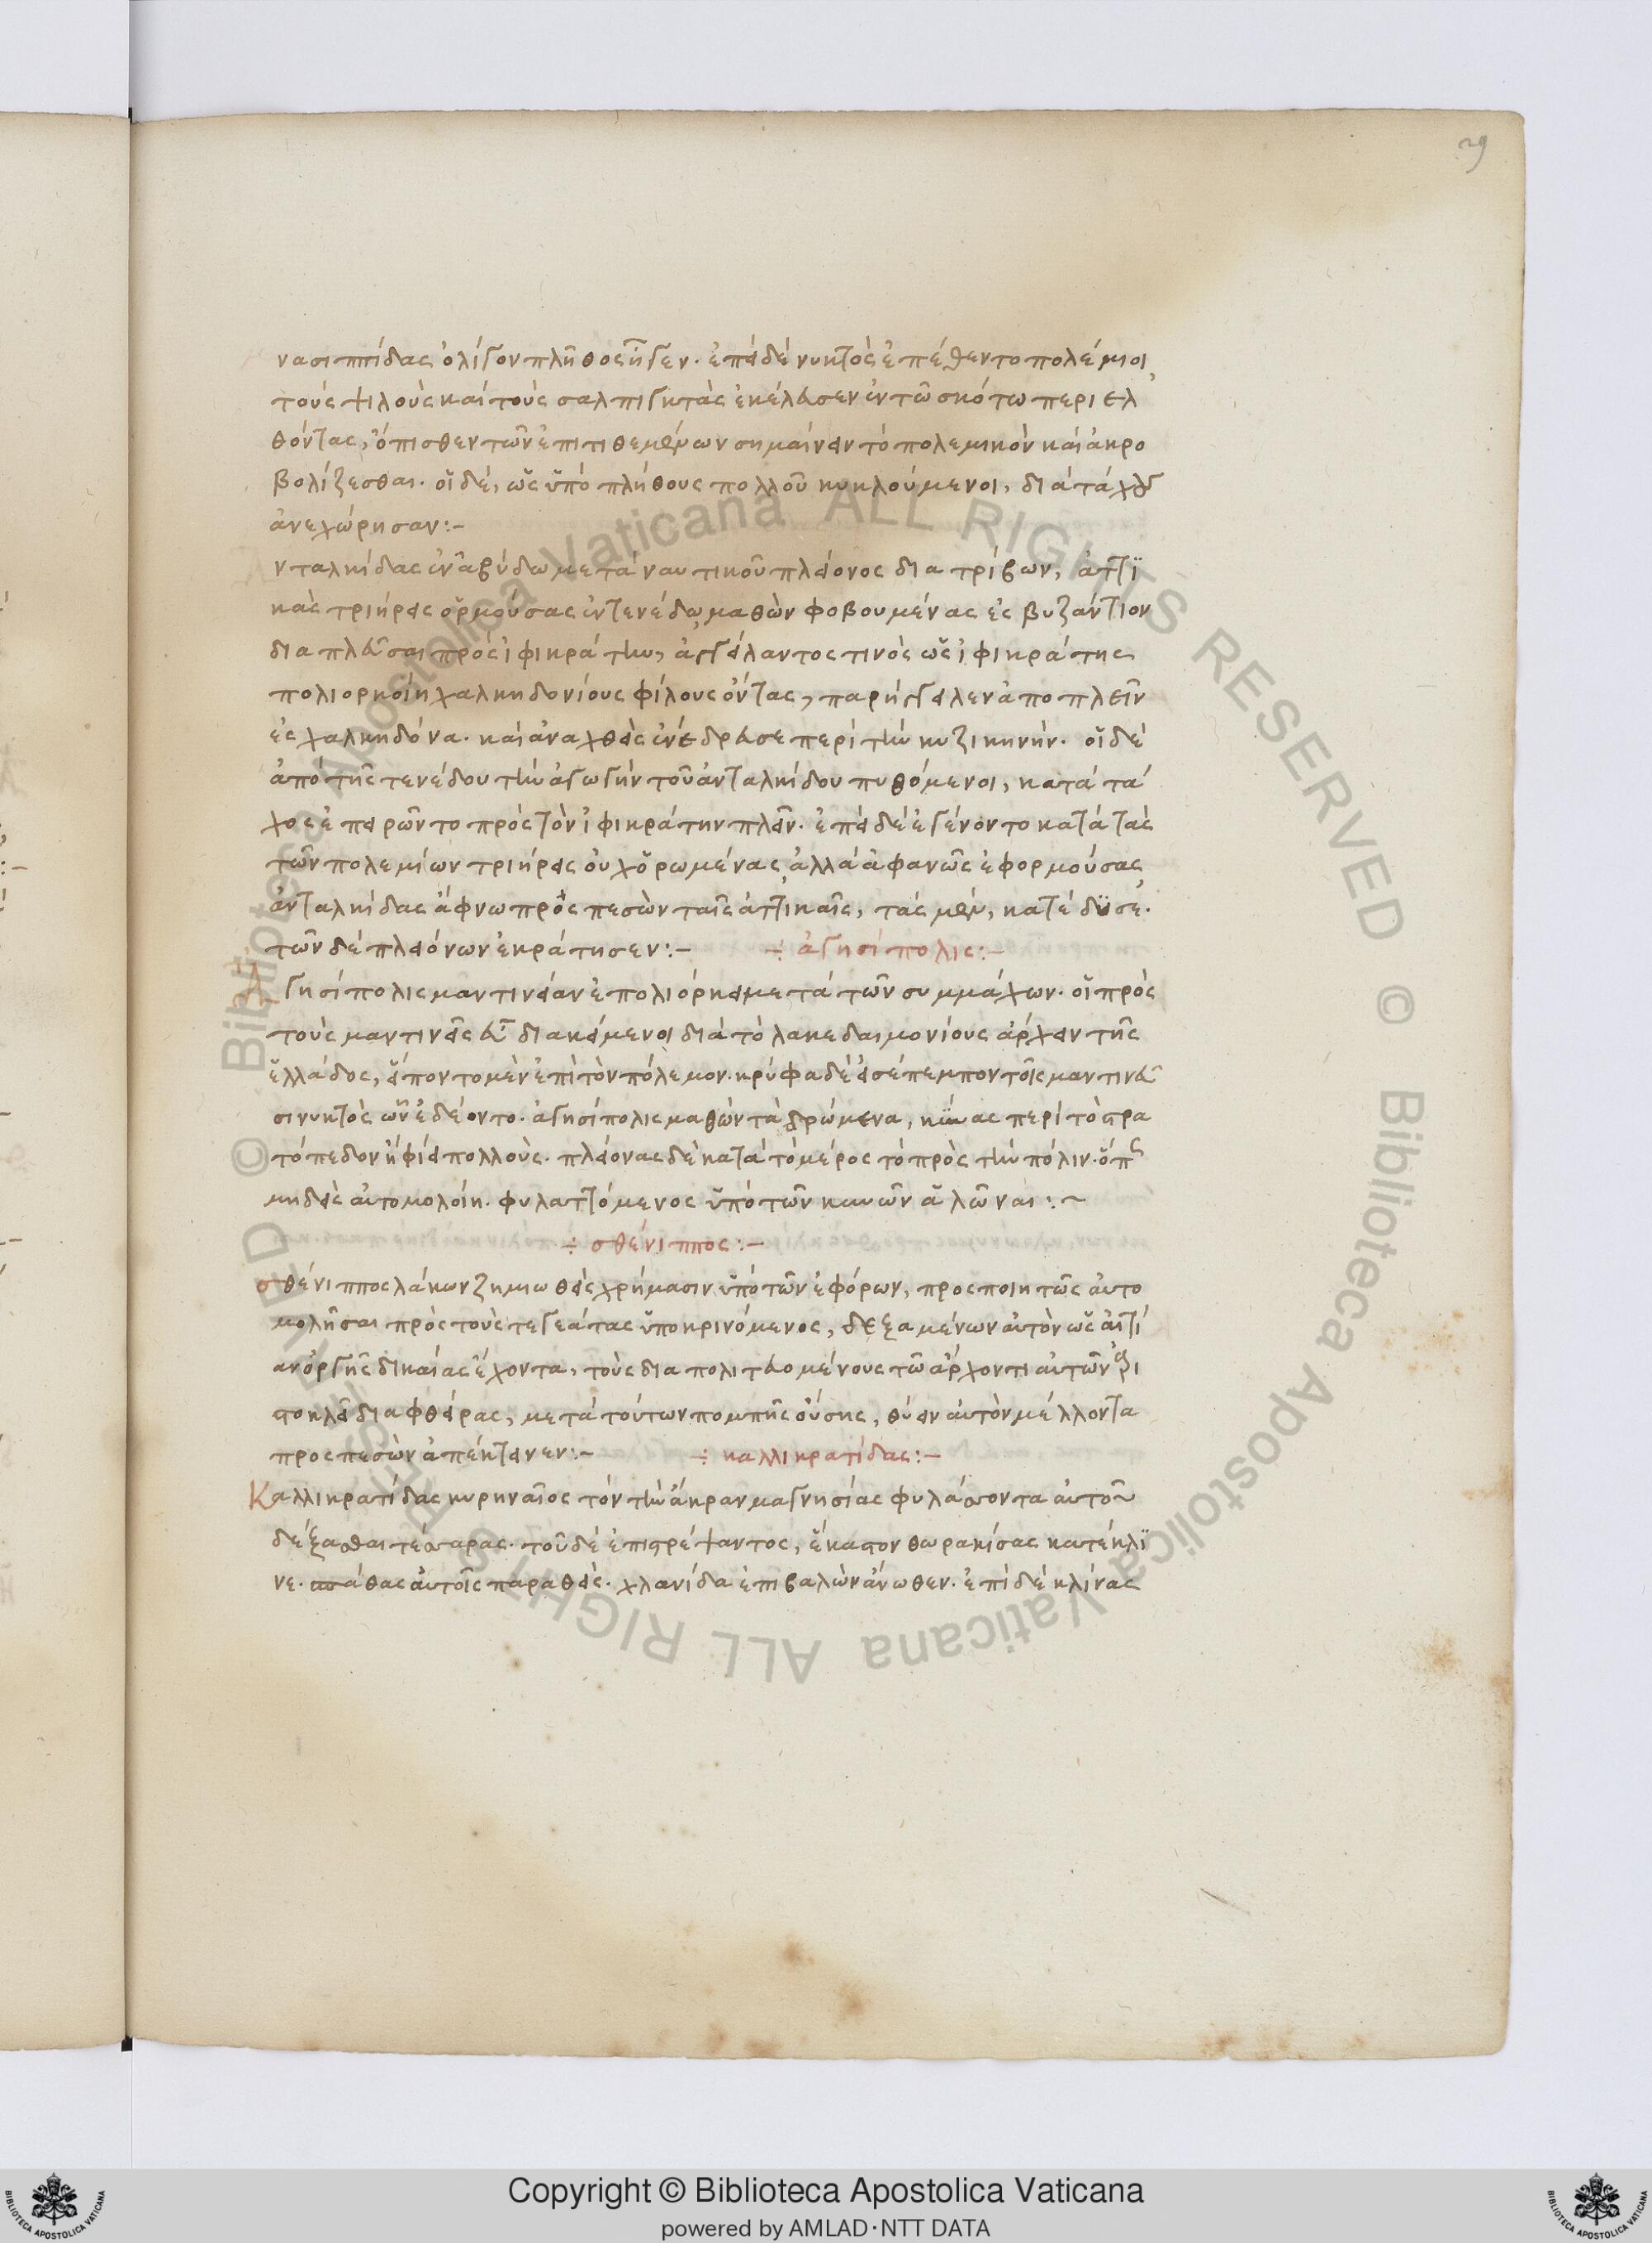 29
νασιππίδας ὀλίγον πλῆθος ἦγεν. ἐπεὶ δὲ νυκτὸς ἐπέθεντο πολέμιοι,
τοὺς ψιλοὺς καὶ τοὺς σαλπιγκτὰς ἐκέλευσεν ἐν τῶ σκότω περιελ
θόντας, ὄπισθεν τῶν ἐπιτιθεμένων σημαίνειν τὸ πολεμικὸν καὶ ἀκρο
βολίζεσθαι. οἱ δὲ, ὡς ὑπὸ πλήθους πολλοῦ κυκλούμενοι, διὰ τάχους
ἀνεχώρησαν:-
νταλκίδας ἐν ἀβύδω μετὰ ναυτικοῦ πλείονος διατρίβων, ἀττϊ
κὰς τριήρεις ὁρμούσας ἐν τενέδω μαθὼν φοβουμένας ἐς βυζάντιον
διαπλεῦσαι πρὸς ἰφικράτην, ἀγγείλαντος τινὸς ὡς ἰφικράτης
πολιορκοίη χαλκηδονίους φίλους ὄντας, παρήγγειλεν ἀποπλεῖν
ἐς χαλκηδόνα. καὶ ἀναχθεὶς ἐνέδρευσε περὶ τὴν κυζικηνήν. οἱ δὲ
ἀπὸ τῆς τενέδου τὴν ἀγωγὴν τοῦ ἀνταλκίδου πυθόμενοι, κατὰ τά
χος ἐπειρῶντο πρὸς τὸν ἰφικράτην πλεῖν. ἐπεὶ δὲ ἐγένοντο κατὰ τὰς
τῶν πολεμίων τριήρεις οὐχ ὁρωμένας, ἀλλὰ ἀφανῶς ἐφορμούσας,
ἀνταλκίδας ἄφνω προσπεσὼν ταῖς ἀττικαῖς, τὰς μὲν, κατέδυσε.
τῶν δὲ πλειόνων ἐκράτησεν:- ÷ ἀγησίπολις:-
Ἀγησίπολις μαντινείαν ἐπολιόρκει μετὰ τῶν συμμάχων. οἱ πρὸς
τοὺς μαντινεῖς εὖ διακείμενοι διὰ τὸ λακεδαιμονίους ἄρχειν τῆς
ἑλλάδος, εἵποντο μὲν ἐπὶ τὸν πόλεμον. κρύφα δὲ εἰσέπεμπον τοῖς μαντινεῦ
σι νυκτὸς ὧν ἐδέοντο. ἀγησίπολις μαθὼν τὰ δρώμενα, κύνας περὶ τὸ στρα
τόπεδον ἠφίει πολλοὺς. πλείονας δὲ κατὰ τὸ μέρος τὸ πρὸς τὴν πόλιν. ὅπως
μηδεὶς αὐτομολοίη. φυλαττόμενος ὑπὸ τῶν κυνῶν ἁλῶναι:~
÷ σθένιππος:-
σθένιππος λάκων ζημιωθεὶς χρήμασιν ὑπὸ τῶν ἐφόρων, προσποιητῶς αὐτο
μολῆσαι πρὸς τοὺς τεγεάτας ὑποκρινόμενος, δεξαμένων αὐτὸν ὡς αἰτί
αν ὀργῆς δικαίας ἔχοντα, τοὺς διαπολιτευομένους τῶ ἄρχοντι αὐτῶν ἀρι
στοκλεῖ διαφθείρας, μετὰ τούτων πομπῆς οὔσης, θύειν αὐτὸν μέλλοντα
προσπεσὼν ἀπέκτεινεν:- ÷ καλλικρατίδας:-
Καλλικρατίδας κυρηναῖος τὸν τὴν ἄκραν μαγνησίας φυλάσσοντα αὐτοῦ
δέξασθαι τέσσαρας. τοῦ δὲ ἐπιτρέψαντος, ἕκαστον θωρακίσας κατέκλϊ
νε. σπάθας αὐτοῖς παραθεὶς. χλανίδα ἐπιβαλὼν ἄνωθεν. ἐπὶ δὲ κλίνας
Copyright © Biblioteca Apostolica Vaticana
powered by AMLAD·NTT DATA